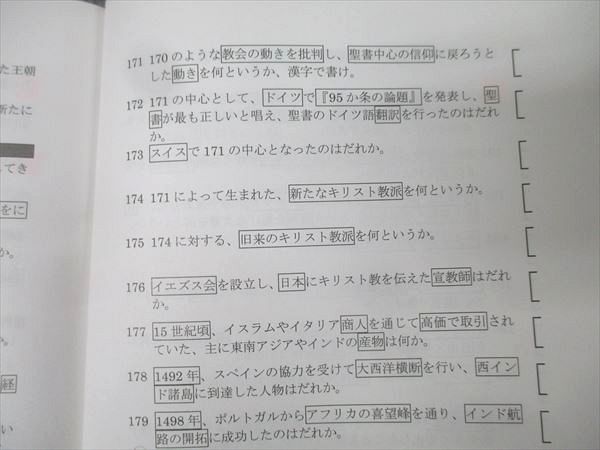 た王朝
新たに
てき
をに
か。
経
い
171 170のような教会の動きを批判し、聖書中心の信仰に戻ろうと
した動きを何というか、漢字で書け。
172 171の中心として、ドイツで『95か条の論題』を発表し、聖
書が最も正しいと唱え、聖書のドイツ語翻訳を行ったのはだれ
か。
173 スイスで171の中心となったのはだれか。
174 171によって生まれた、新たなキリスト教派を何というか。
175 174に対する、旧来のキリスト教派を何というか。
176 イエズス会を設立し、日本にキリスト教を伝えた宣教師はだれ
か。
177 15世紀頃、イスラムやイタリア商人を通じて高価で取引され
ていた、主に東南アジアやインドの産物は何か。
178 1492年、スペインの協力を受けて大西洋横断を行い、西イン
ド諸島に到達した人物はだれか。
179 1498年、ポルトガルからアフリカの喜望峰を通り、インド航
路の開拓に成功したのはだれか。